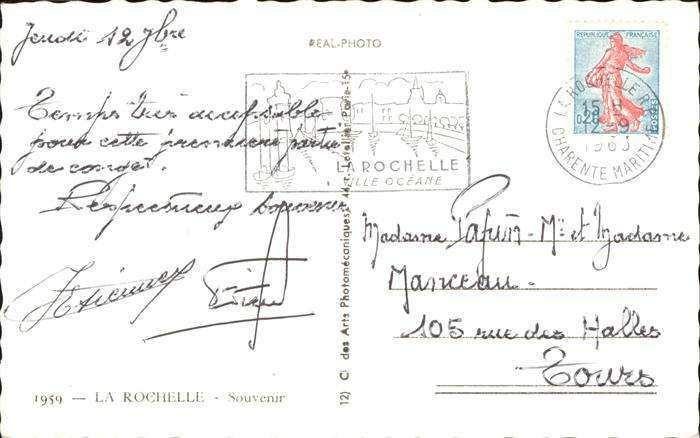 Jeudi 12 7bre
REAL-PHOTO
REPUBLIQUE FRANÇAISE
0,20
POSTES
LA ROCHELLE
15 H
12-9
1963
CHARENTE MARITIME
LA ROCHELLE
VILLE OCÉANE
Temps très acceptable
pour cette première partie
de congé.
Respectueux
Madame Papin - Mr et Madame
Manceau -
105 rue des Halles
Tours
12) Cie des Arts Photomécaniques, 44, r. Letellier, Paris-15e
1959 — LA ROCHELLE - Souvenir